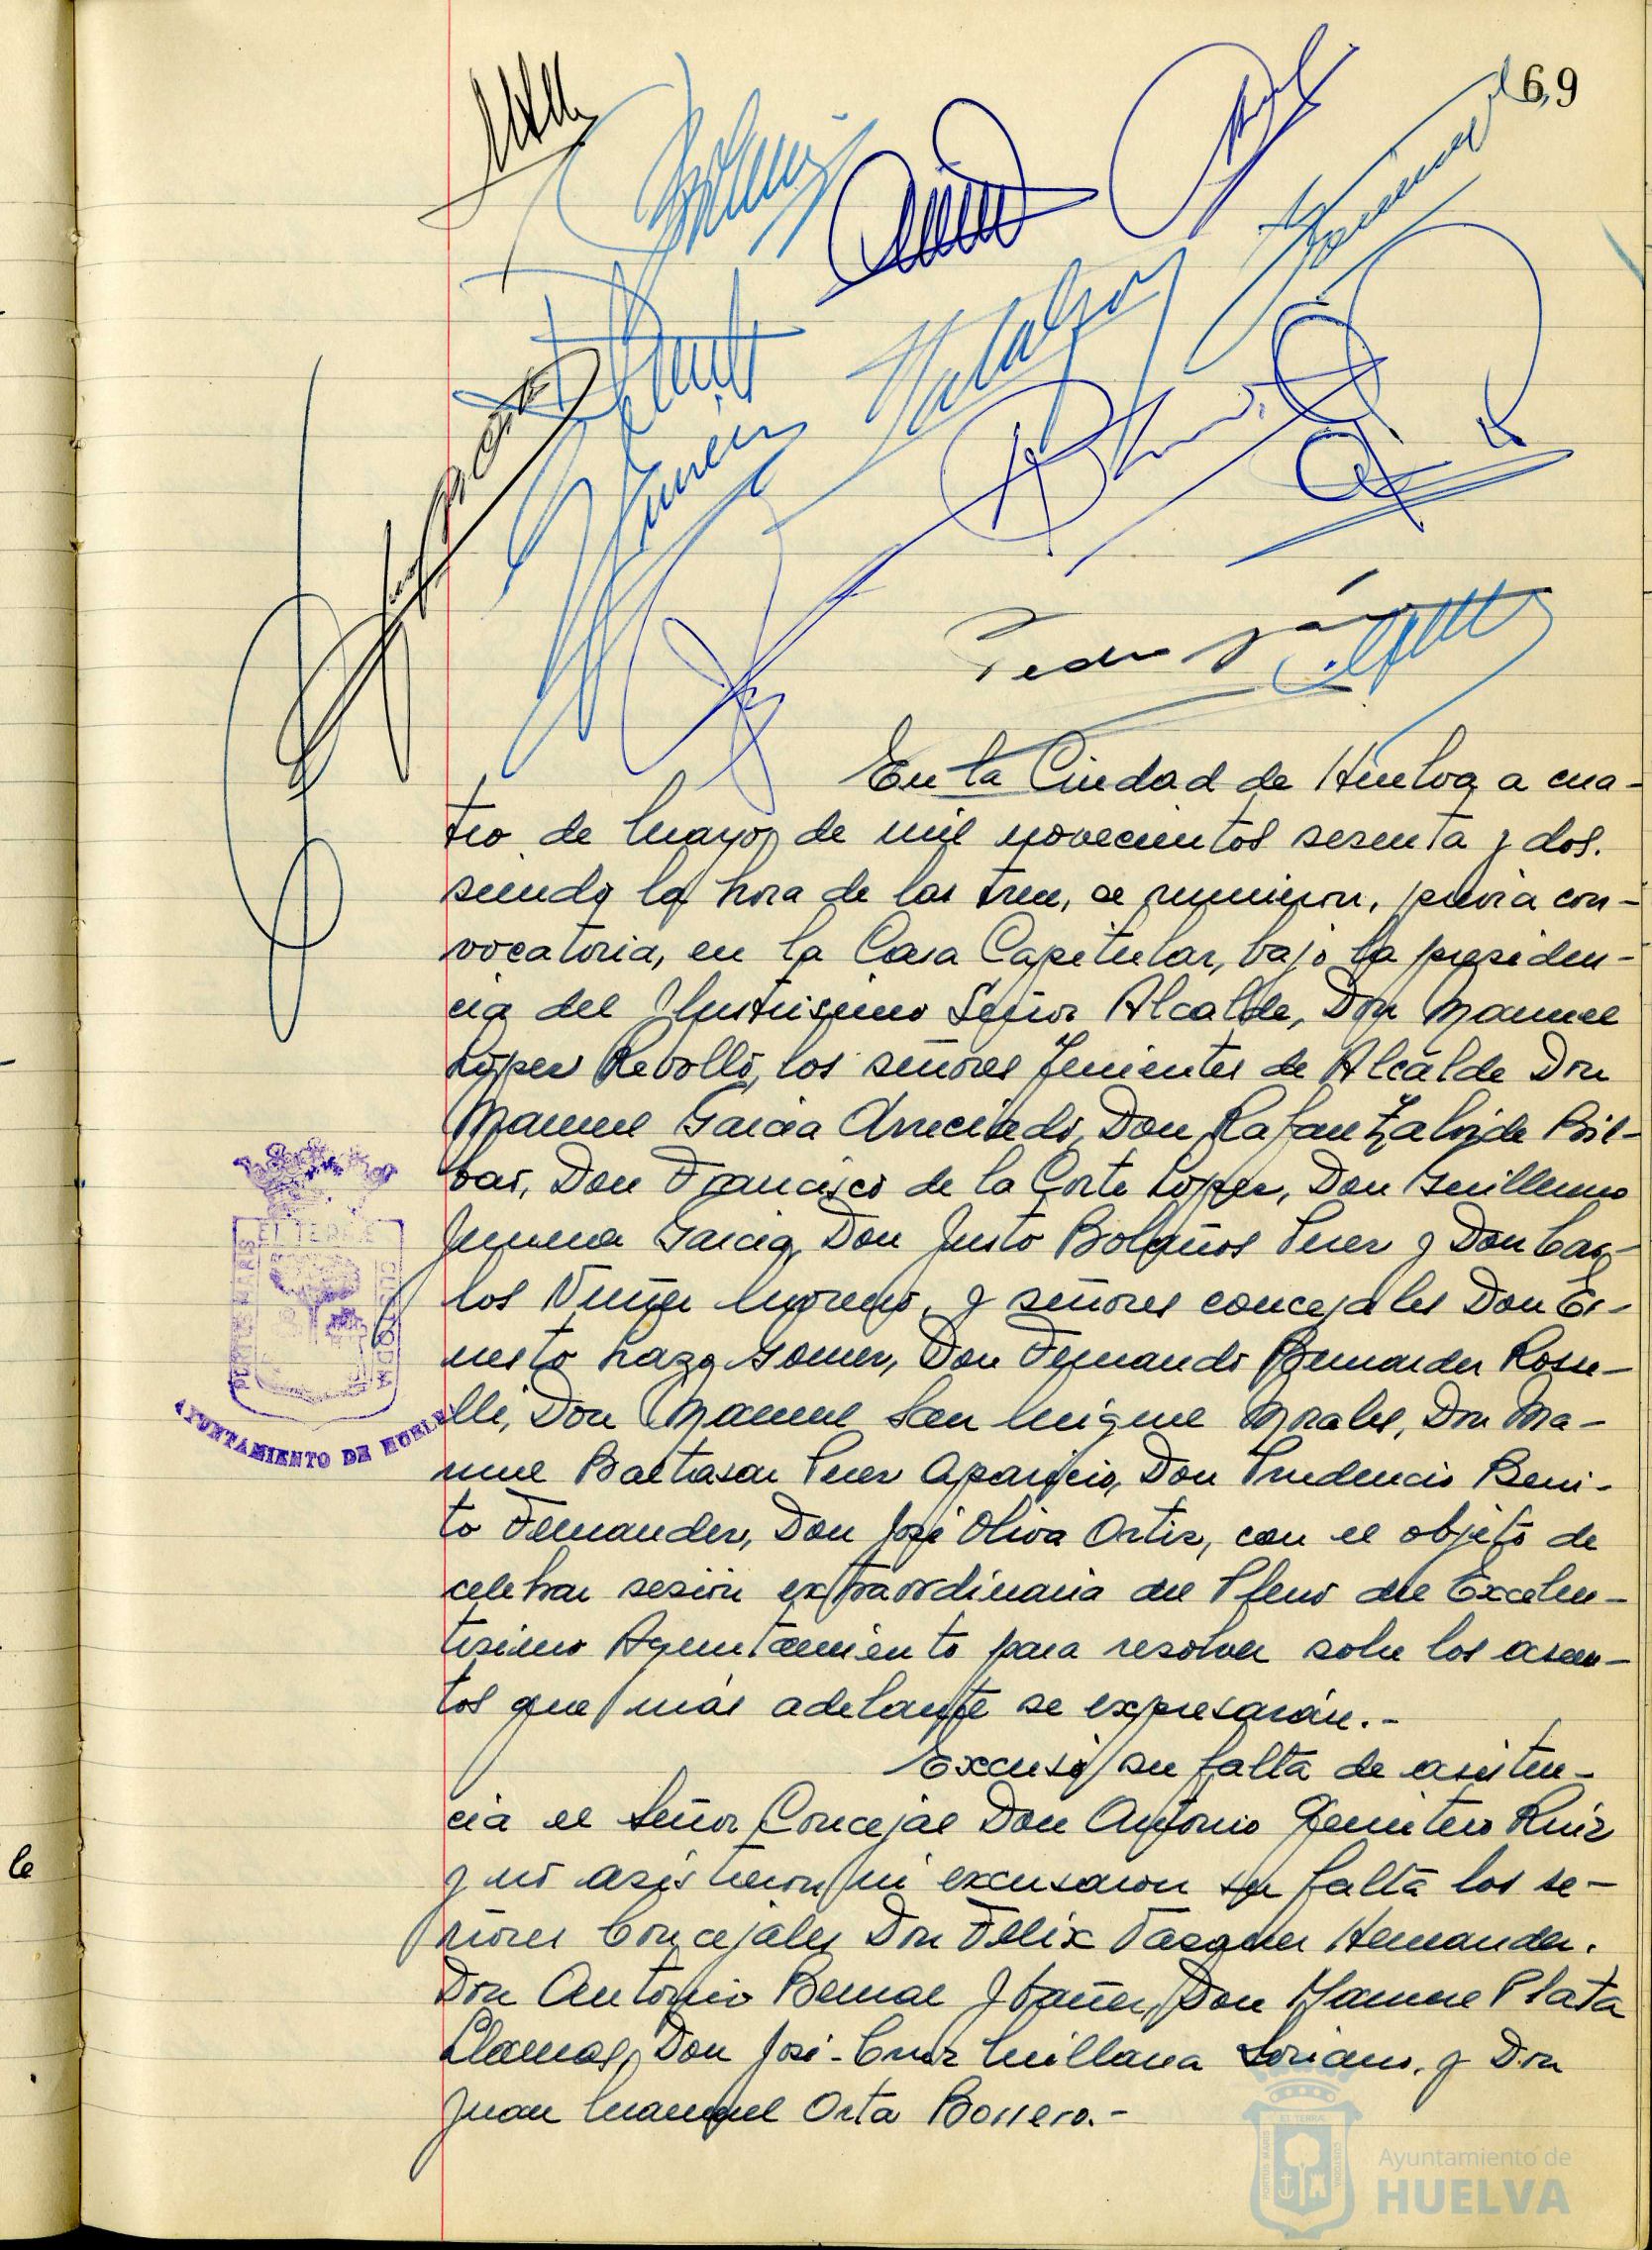 69
Pedro
En la Ciudad de Huelva a cua-
tro de Mayo de mil novecientos sesenta y dos.
siendo la hora de las tres, se reunieron, previa con-
vocatoria, en la Casa Capitular, bajo la presiden-
cia del Ilustrisimo Señor Alcalde, Don Manuel
López Rebollo, los señores Tenientes de Alcalde Don
Manuel Garcia Arreciado, Don Rafael Zalvide Bil-
bao, Don Francisco de la Corte López, Don Guillermo
Jimenez Garcia, Don Justo Bolaños Perez y Don Car-
los Nuñez Moreno, y señores concejales Don Er-
nesto Lazo Gomez, Don Fernando Bermudez Rose-
lli, Don Manuel San Miguel Morales, Don Ma-
nuel Baltasar Perez Aparicio, Don Prudencio Beni-
to Fernandez, Don José Oliva Ortiz, con el objeto de
celebrar sesión extraordinaria del Pleno del Excelen-
tisimo Ayuntamiento para resolver sobre los asun-
tos que más adelante se expresarán.-
Excusó su falta de asisten-
cia el Señor Concejal Don Antonio Ruiz
y no asistieron ni excusaron su falta los se-
ñores Concejales Don Félix Vazquez Hernandez.
Don Antonio Bernal Ibañez, Don Manuel Plata
Llamas, Don José-Cruz Millana Soriano, y Don
Juan Manuel Orta Borrero.-
EL TERRÆ
PORTUS MARIS
CUSTODIA
AYUNTAMIENTO DE HUELVA
le
Ayuntamiento de
HUELVA